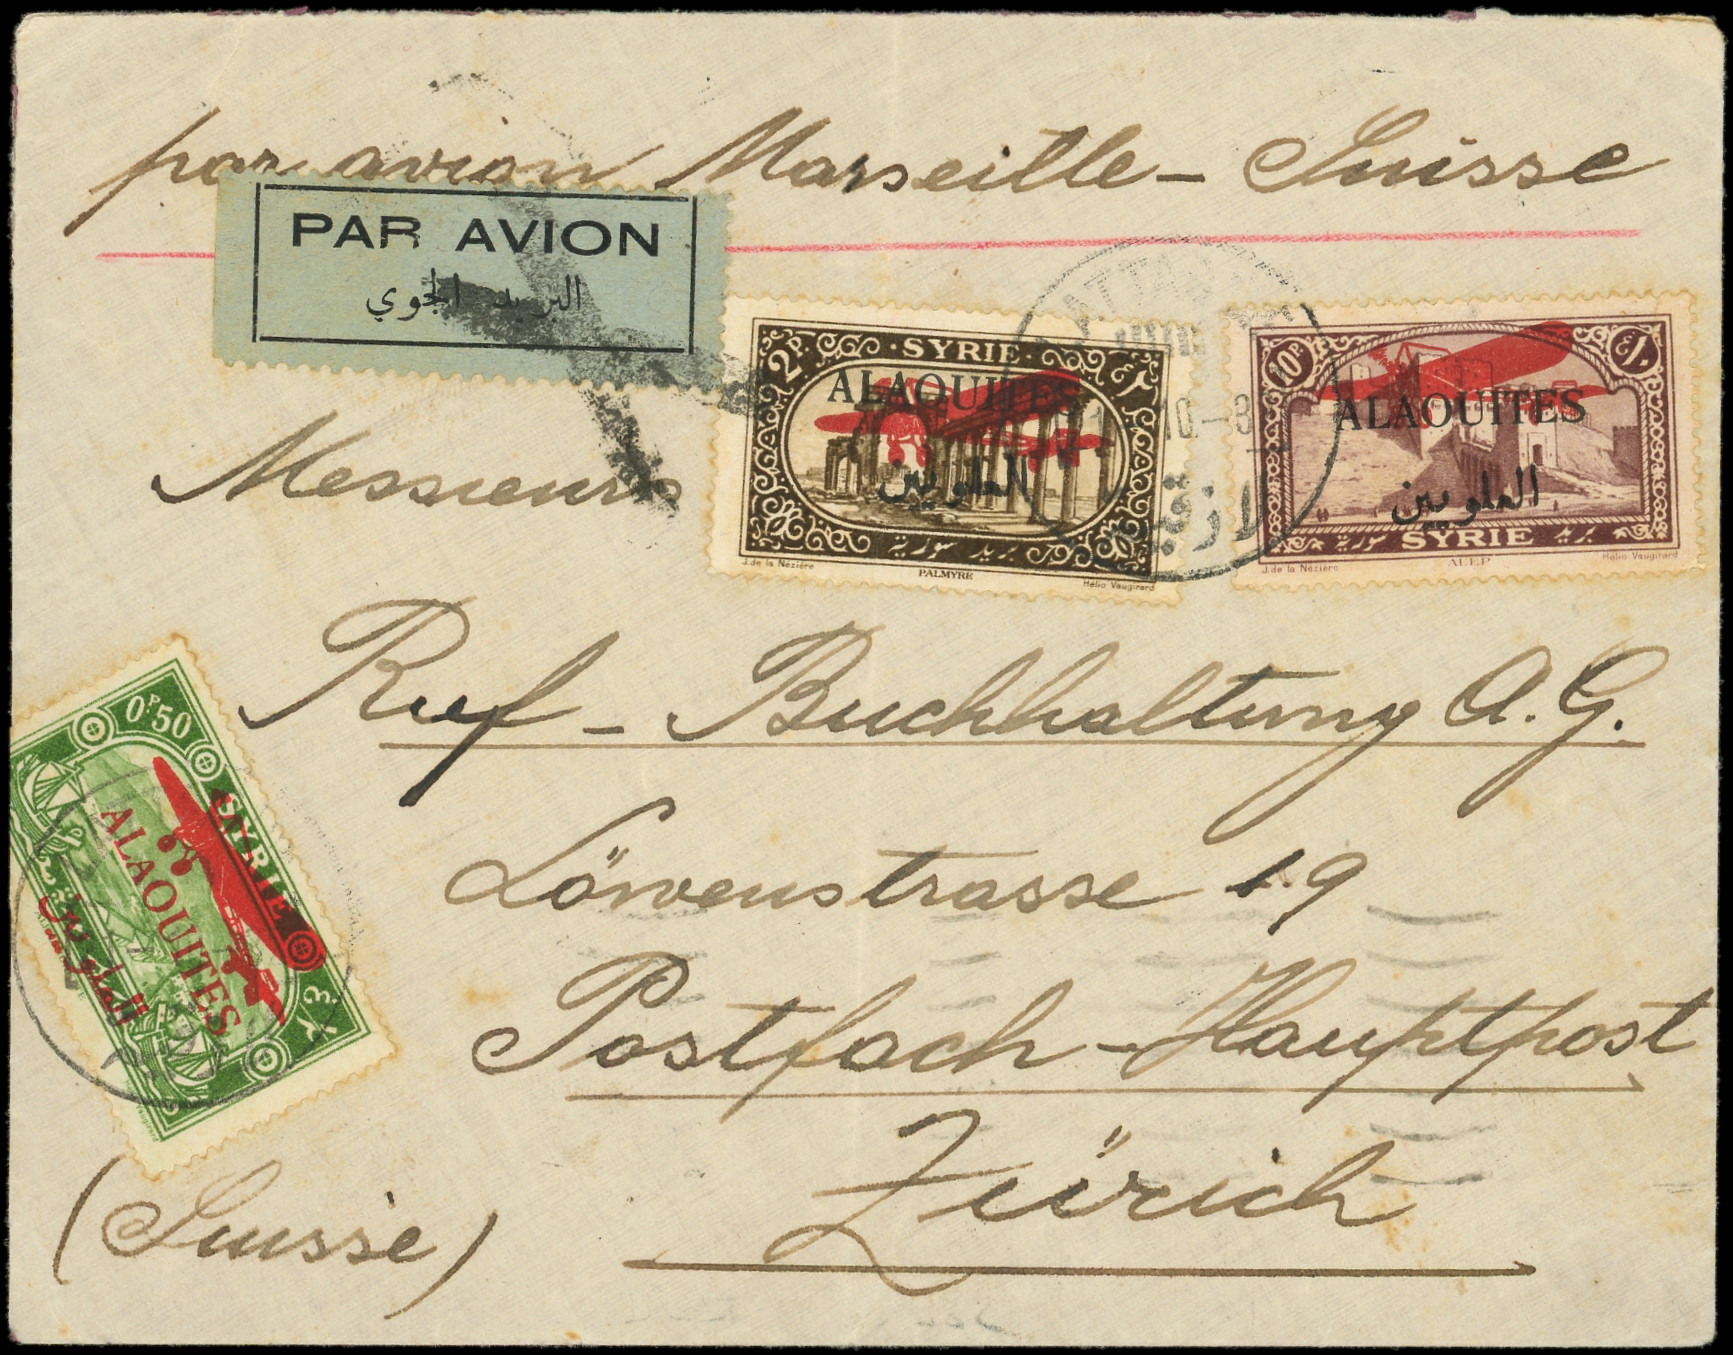 par avion Marseille - Suisse
PAR AVION
البريد الجوي
2P · SYRIE · ٢
ALAOUITES
العلويين
بريد سورية
J. de la Nézière PALMYRE Hélio Vaugirard
LATTAQ
10-8
لازقية
10P
ALAOUITES
العلويين
بريد سورية SYRIE
J. de la Nézière ALEP Hélio Vaugirard
Messieurs
Ruf - Buchhaltung A.G.
0P50
SYRIE
ALAOUITES
العلويين
Löwenstrasse 19
Postfach - Hauptpost
Zürich
(Suisse)